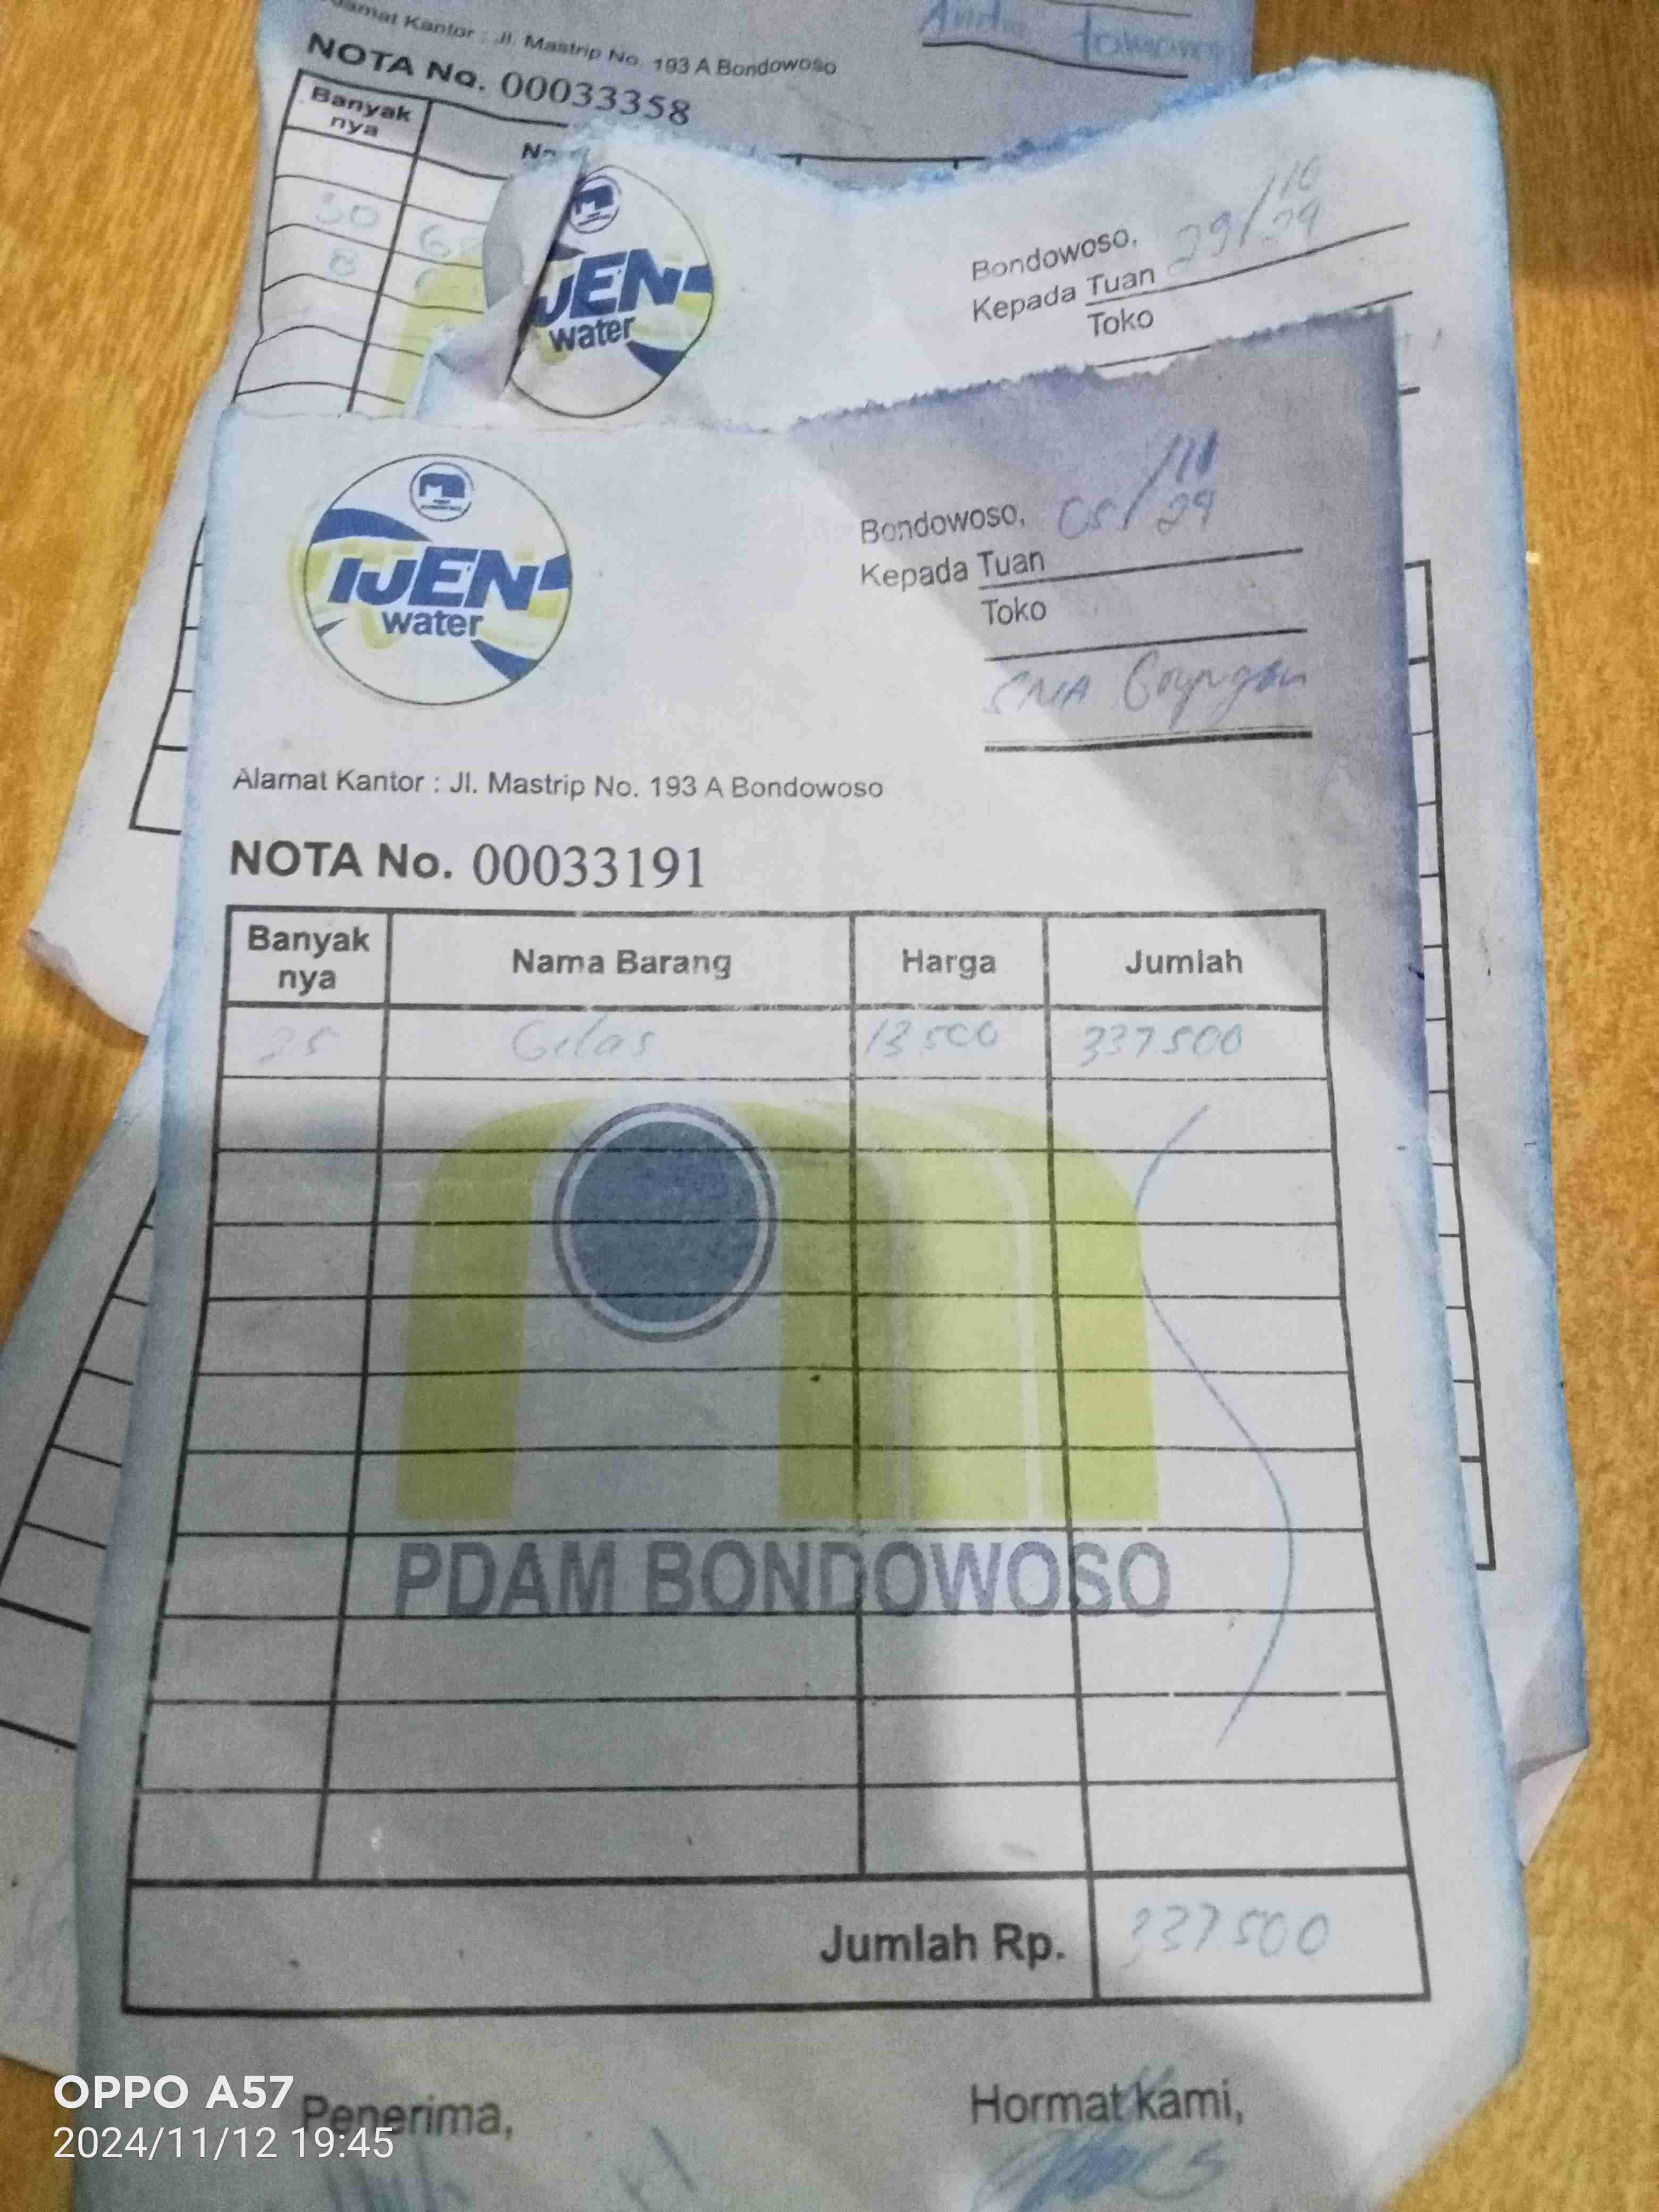 Alamat Kantor : Jl. Mastrip No. 193 A Bondowoso
NOTA No. 00033358
Banyak nya
30
8
IJEN water
Bondowoso, 29/10 24
Kepada Tuan
Toko
IJEN water
Bondowoso, 05/11 24
Kepada Tuan
Toko
SMA
Alamat Kantor : Jl. Mastrip No. 193 A Bondowoso
NOTA No. 00033191
Banyak nya Nama Barang Harga Jumlah
25 Gelas 13500 337500
PDAM BONDOWOSO
Jumlah Rp. 337500
Penerima, Hormat kami,
OPPO A57
2024/11/12 19:45